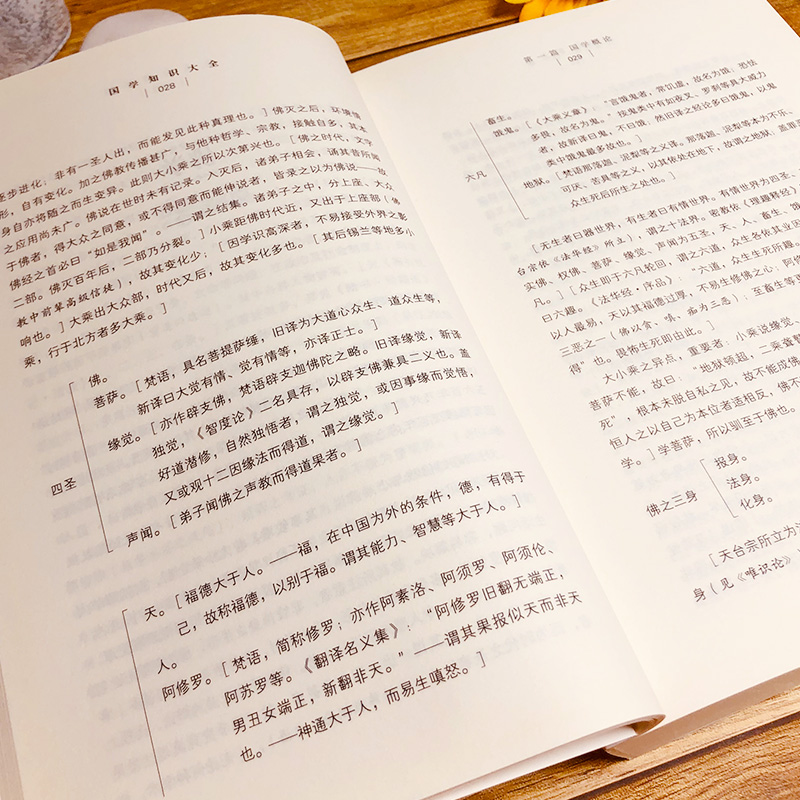 国学知识大全
028
步进化；非有一圣人出，而能发见此种真理也。］佛灭之后，环境情
形，自有变化。加之佛教传播甚广，与他种哲学、宗教，接触自多，其本
身自亦将随之而生变异。此则大小乘之所以次第兴也。［佛之时代，文字
之应用尚未广。佛说在世时未有记录。入灭后，诸弟子相会，诵其昔所闻
于佛者，得大众之同意，或不得同意而能伸说者，皆录之以为佛说——故
佛经之首必曰“如是我闻”。——谓之结集。诸弟子之中，分上座、大众
二部。佛灭百年后，二部乃分裂。］小乘距佛时代近，又出于上座部（佛
教中前辈高级信徒），故其变化少；［因学识高深者，不易接受外界之影
响也。］大乘出大众部，时代又后，故其变化多也。［其后锡兰等地多小
乘，行于北方者多大乘。］
四圣
佛。
菩萨。［梵语，具名菩提萨埵，旧译为大道心众生、道众生等，
新译曰大觉有情、觉有情等，亦译正士。］
缘觉。［亦作辟支佛，梵语辟支迦佛陀之略。旧译缘觉，新译
独觉，《智度论》二名具存，以辟支佛兼具二义也。盖
好道潜修，自然独悟者，谓之独觉，或因事缘而觉悟，
又或观十二因缘法而得道，谓之缘觉。］
声闻。［弟子闻佛之声教而得道果者。］
天。［福德大于人。——福，在中国为外的条件，德，有得于
己，故称福德，以别于福。谓其能力、智慧等大于人。］
人。
阿修罗。［梵语，简称修罗；亦作阿素洛、阿须罗、阿须伦、
阿苏罗等。《翻译名义集》：“阿修罗旧翻无端正，
男丑女端正，新翻非天。”——谓其果报似天而非天
也。——神通大于人，而易生嗔怒。］
第一篇 国学概论
029
六凡
畜生。
饿鬼。［《大乘义章》：“言饿鬼者，常饥虚，故名为饿；恐怯
多畏，故名为鬼。”按鬼类中有如夜叉、罗刹等具大威力
者，故新译曰鬼，不曰饿，然旧译之经论多曰饿鬼，以鬼
类中饿鬼最多故也。］
地狱。［梵语那落迦、泥犁等之义译。那落迦、泥犁等本为不乐、
可厌、苦具等之义，以其依处在地下，故谓之地狱，盖罪恶
众生死后所生之处也。］
［无生者曰器世界，有生者曰有情世界。有情世界为四圣、
台宗依《法华经》所立），谓之十法界。密教依《理趣释经》
实佛、权佛、菩萨、缘觉、声闻为五圣，天、人、畜生、饿
凡。］［众生即于六凡轮回，谓之六道，众生名依其业因
曰六趣。《法华经·序品》：“六道，众生生死所
以人最易，天以其福德过厚，不易生修佛之心；阿修
三恶之一（佛以贪、嗔、痴为三恶）；至畜生等
得”也。畏怖生死即由此。］
大小乘之异点，重要者：小乘说缘觉、
菩萨不能，故曰：“地狱顿超，二乘
死”，根本未脱自私之见，故不能成佛
恒人之以自己为本位者适相反，佛
学。］学菩萨，所以驯至于佛也。
佛之三身
报身。
法身。
化身。
［天台宗所立为
身（见《唯识论》